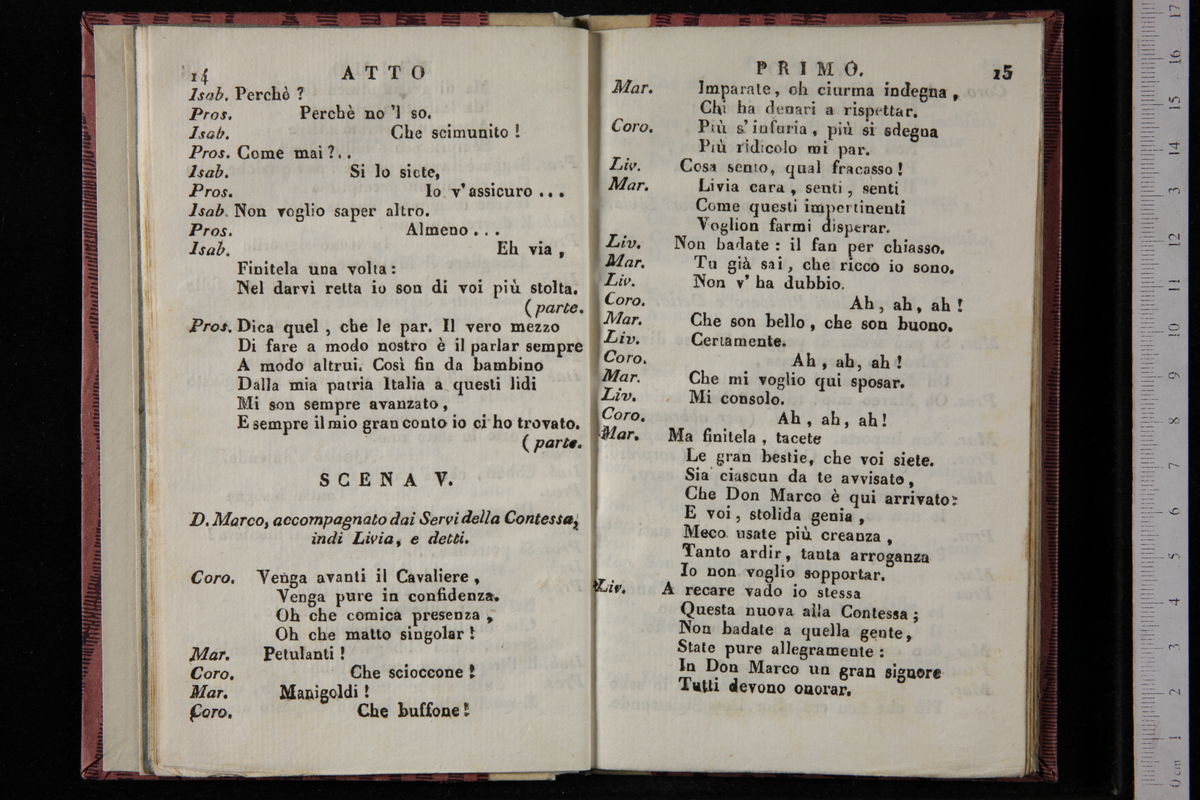 14 ATTO
Isab. Perchè ?
Pros. Perchè no 'l so.
Isab. Che scimunito !
Pros. Come mai ?..
Isab. Si lo siete,
Pros. Io v' assicuro ...
Isab. Non voglio saper altro.
Pros. Almeno ...
Isab. Eh via ,
Finitela una volta :
Nel darvi retta io son di voi più stolta.
(parte.
Pros. Dica quel , che le par. Il vero mezzo
Di fare a modo nostro è il parlar sempre
A modo altrui. Così fin da bambino
Dalla mia patria Italia a questi lidi
Mi son sempre avanzato ,
E sempre il mio gran conto io ci ho trovato.
(parte.
SCENA V.
D. Marco, accompagnato dai Servi della Contessa,
indi Livia, e detti.
Coro. Venga avanti il Cavaliere ,
Venga pure in confidenza.
Oh che comica presenza ,
Oh che matto singolar !
Mar. Petulanti !
Coro. Che scioccone !
Mar. Manigoldi !
Coro. Che buffone !
PRIMO. 15
Mar. Imparate, oh ciurma indegna ,
Chi ha denari a rispettar.
Coro. Più s' infuria , più si sdegna
Più ridicolo mi par.
Liv. Cosa sento, qual fracasso !
Mar. Livia cara , senti , senti
Come questi impertinenti
Voglion farmi disperar.
Liv. Non badate : il fan per chiasso.
Mar. Tu già sai , che ricco io sono.
Liv. Non v' ha dubbio.
Coro. Ah , ah, ah !
Mar. Che son bello , che son buono.
Liv. Certamente.
Coro. Ah , ah, ah !
Mar. Che mi voglio qui sposar.
Liv. Mi consolo.
Coro. Ah , ah, ah!
Mar. Ma finitela , tacete
Le gran bestie, che voi siete.
Sia ciascun da te avvisato ,
Che Don Marco è qui arrivato:
E voi , stolida genia ,
Meco usate più creanza ,
Tanto ardir, tanta arroganza
Io non voglio sopportar.
Liv. A recare vado io stessa
Questa nuova alla Contessa ;
Non badate a quella gente,
State pure allegramente :
In Don Marco un gran signore
Tutti devono onorar.
0 cm 1 2 3 4 5 6 7 8 9 10 11 12 13 14 15 16 17